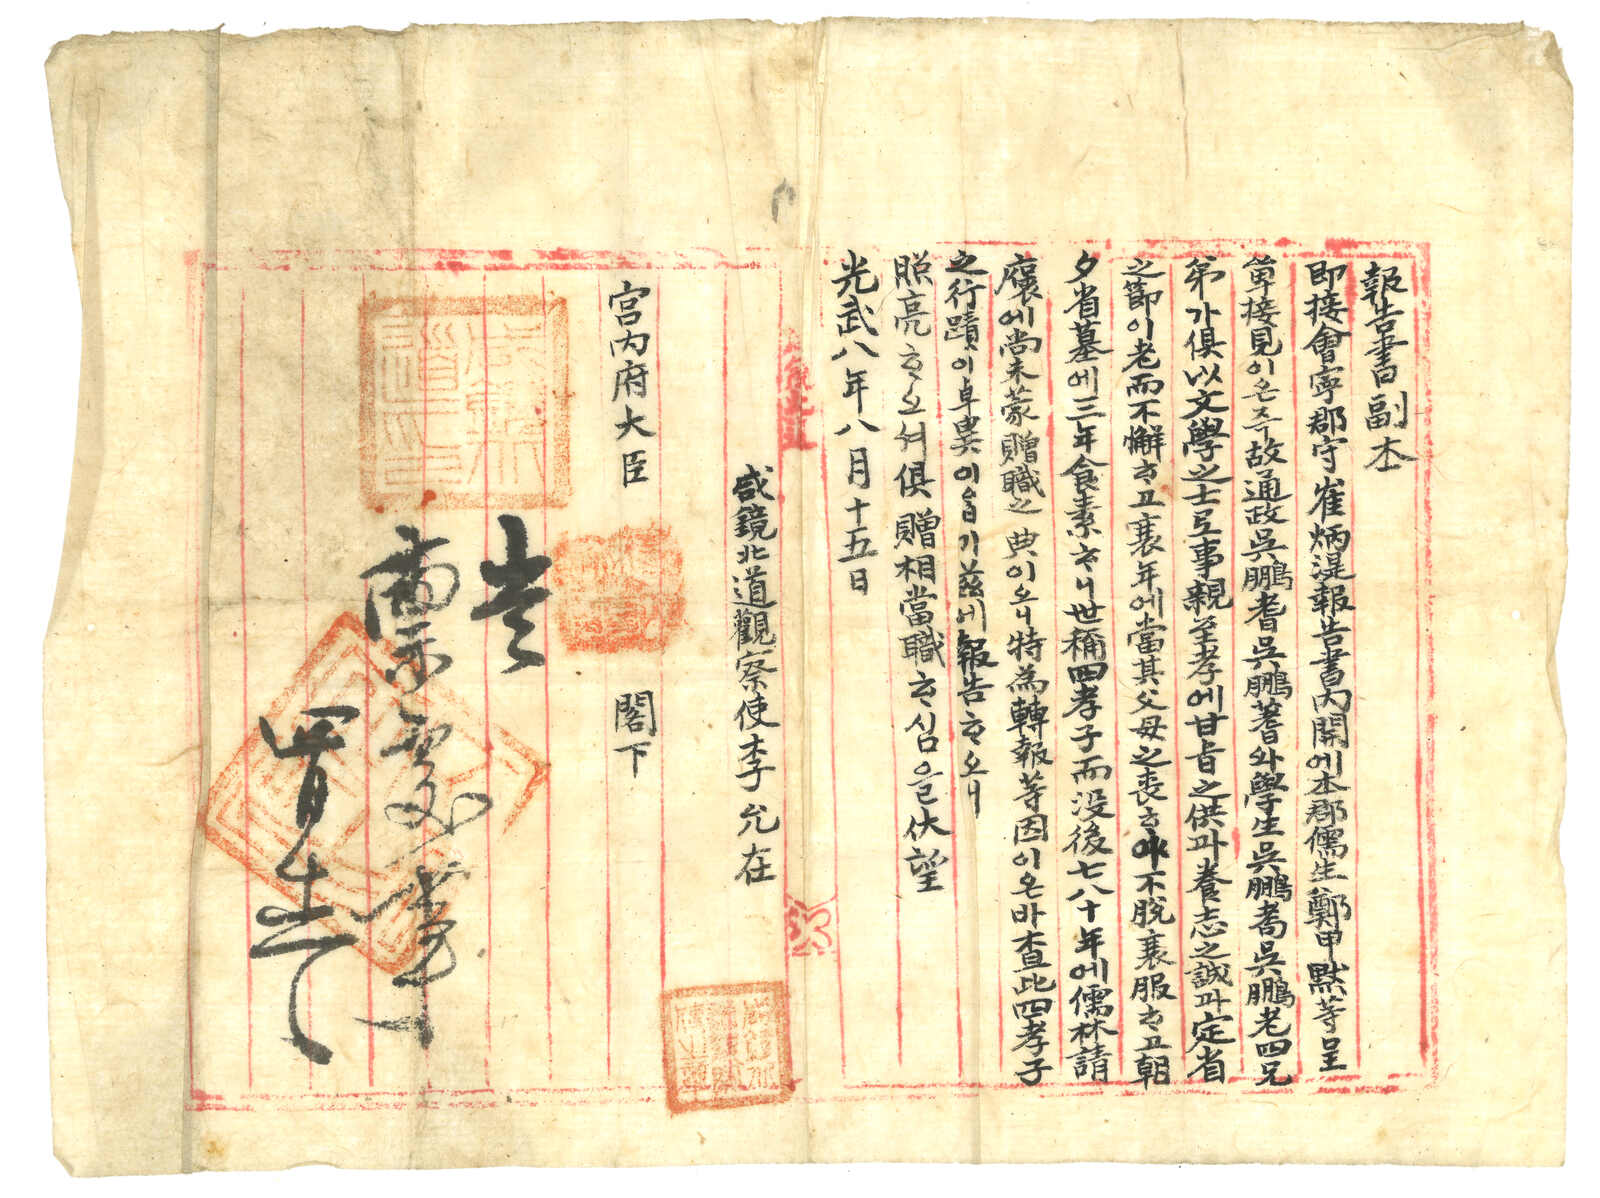 報告書副本
即接會寧郡守崔炳湜報告書內開에本郡儒生鄭甲默等呈
單接見이온즉故通政吳鵬耆吳鵬蓍와學生吳鵬翥吳鵬老四兄
弟가俱以文學之士로事親至孝에甘旨之供과養志之誠과定省
之節이老而不懈하고衰年에當其父母之喪하야不脫衰服하고朝
夕省墓에三年食素하니世稱四孝子而沒後七八十年에儒林請
褒에尙未蒙贈職之典이오니特爲轉報等因이온바査此四孝子
之行蹟이卓異이옵기玆에報告하오니
照亮하오셔俱贈相當職하심을伏望
光武八年八月十五日
咸鏡北道觀察使李允在
宮內府大臣 閣下